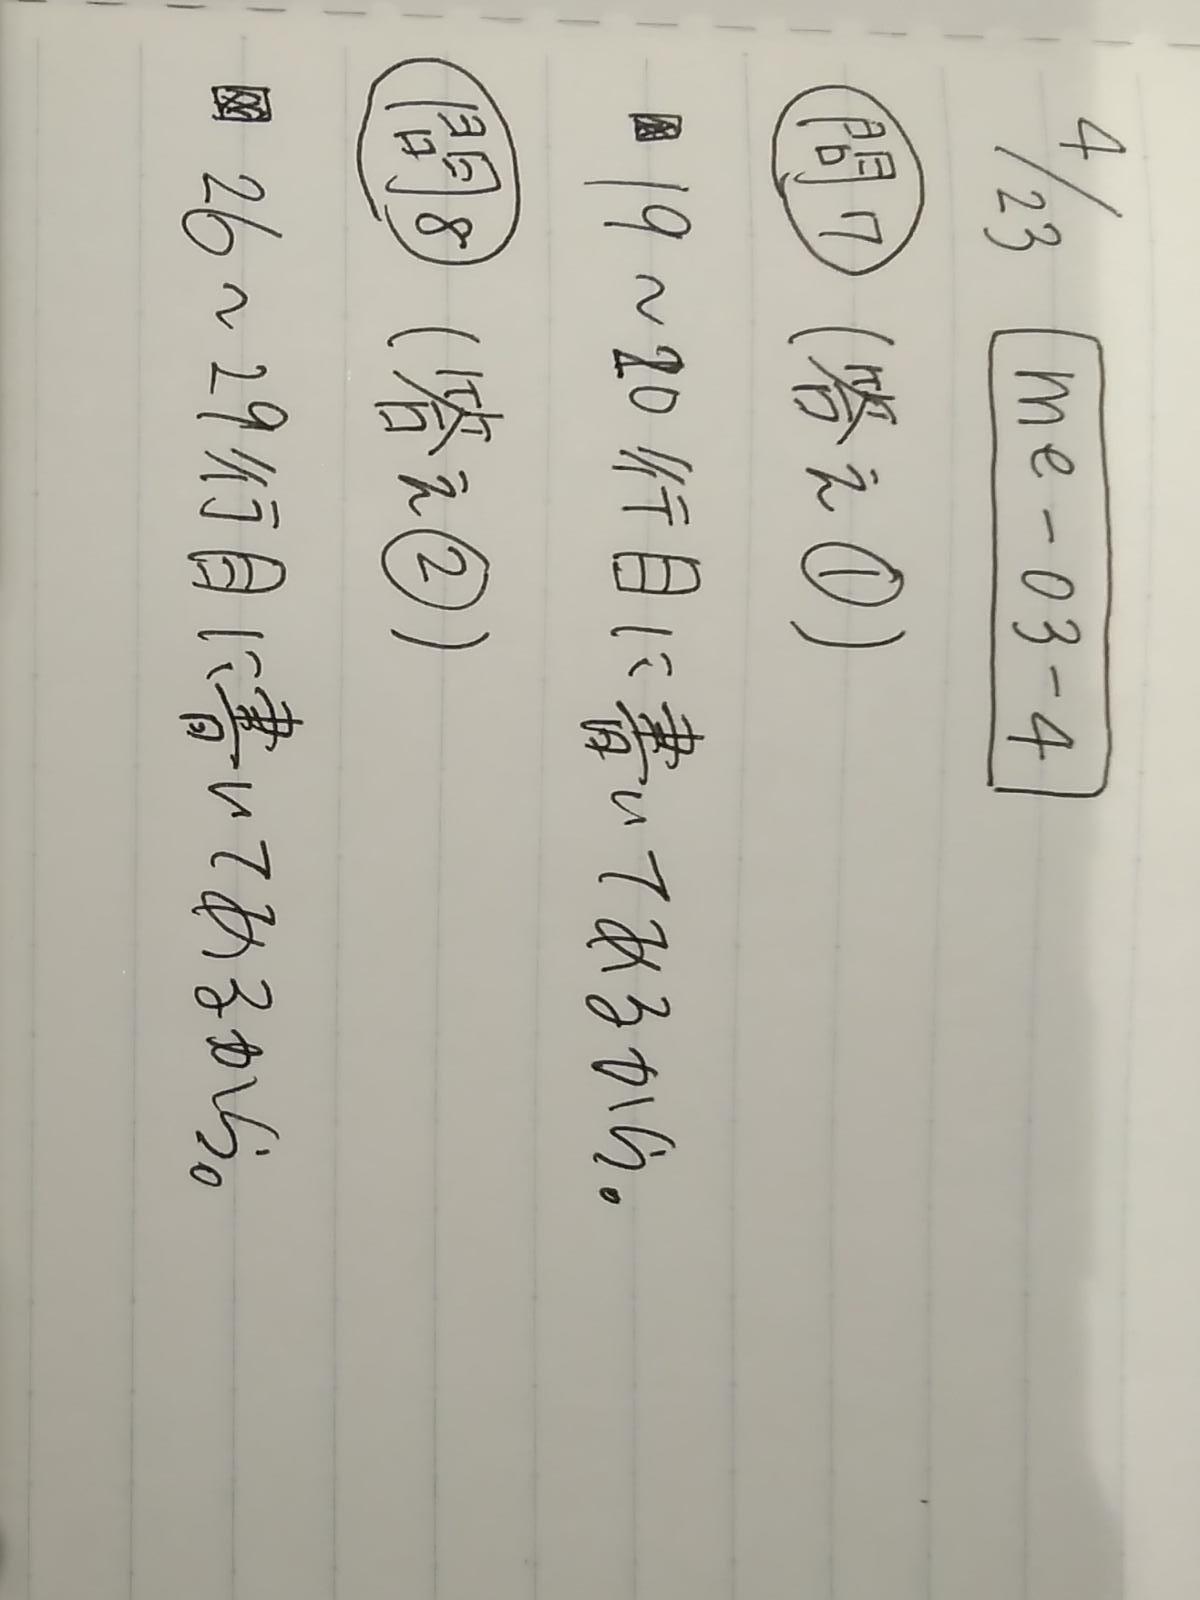 4/23 me-03-4
問7 (答え①)
19～20行目に書いてあるから。
問8 (答え②)
26～29行目に書いてあるから。